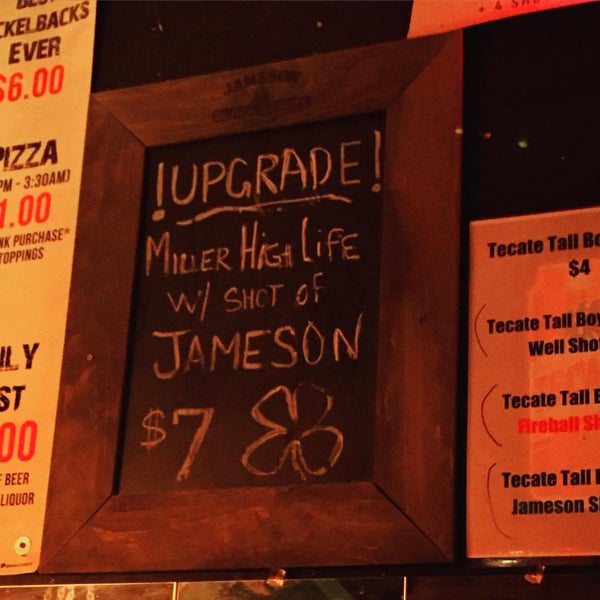 CKELBACKS
EVER
$6.00
PIZZA
PM - 3:30AM)
1.00
NK PURCHASE*
TOPPINGS
ILY
ST
00
F BEER
LIQUOR
JAMESON
!UPGRADE!
MILLER HIGH LIFE
W/ SHOT OF
JAMESON
$7
Tecate Tall Bo
$4
Tecate Tall Boy
Well Sho
Tecate Tall B
Fireball Sh
Tecate Tall
Jameson S